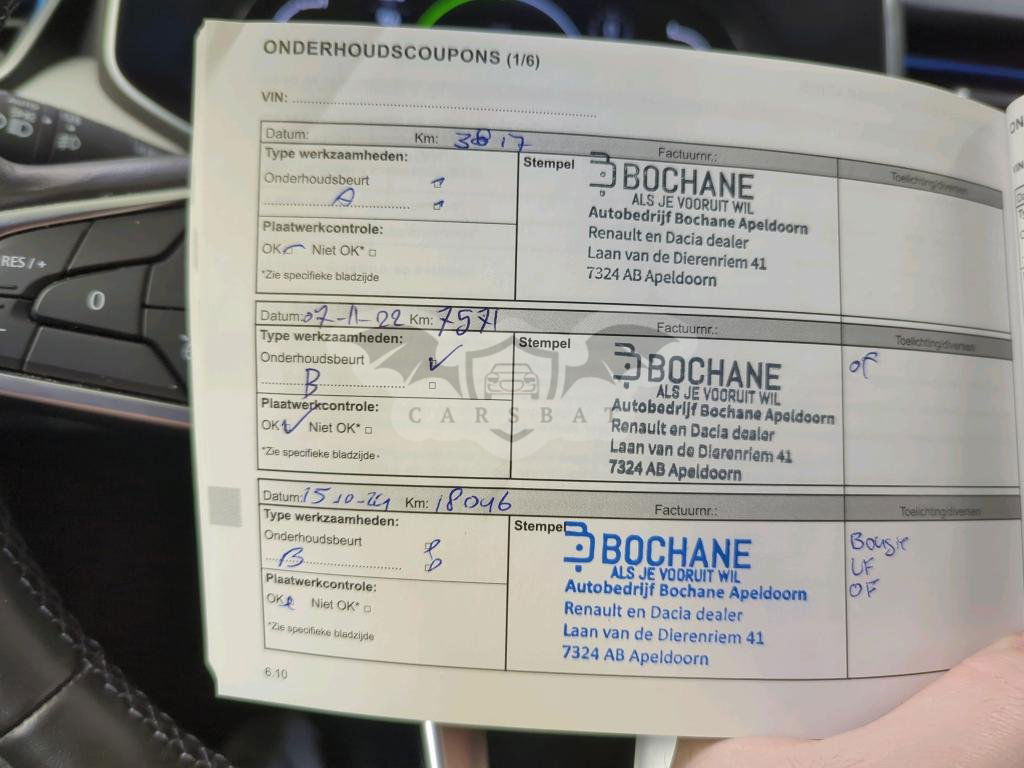 ONDERHOUDSCOUPONS (1/6)
VIN:
Datum: Km: 3817 Factuurnr.:
Type werkzaamheden: Stempel Toelichting/diversen
Onderhoudsbeurt
A
Plaatwerkcontrole:
OK Niet OK* □
*Zie specifieke bladzijde
BOCHANE
ALS JE VOORUIT WIL
Autobedrijf Bochane Apeldoorn
Renault en Dacia dealer
Laan van de Dierenriem 41
7324 AB Apeldoorn
Datum: 07-11-22 Km: 7571 Factuurnr.:
Type werkzaamheden: Stempel Toelichting/diversen
Onderhoudsbeurt
B
Plaatwerkcontrole:
OK Niet OK* □
*Zie specifieke bladzijde
BOCHANE
ALS JE VOORUIT WIL
Autobedrijf Bochane Apeldoorn
Renault en Dacia dealer
Laan van de Dierenriem 41
7324 AB Apeldoorn
OF
CARSBAT
Datum: 15-10-24 Km: 18046 Factuurnr.:
Type werkzaamheden: Stempel Toelichting/diversen
Onderhoudsbeurt
B
Plaatwerkcontrole:
OK Niet OK* □
*Zie specifieke bladzijde
BOCHANE
ALS JE VOORUIT WIL
Autobedrijf Bochane Apeldoorn
Renault en Dacia dealer
Laan van de Dierenriem 41
7324 AB Apeldoorn
Bougie
UF
OF
6.10
RES / +
0